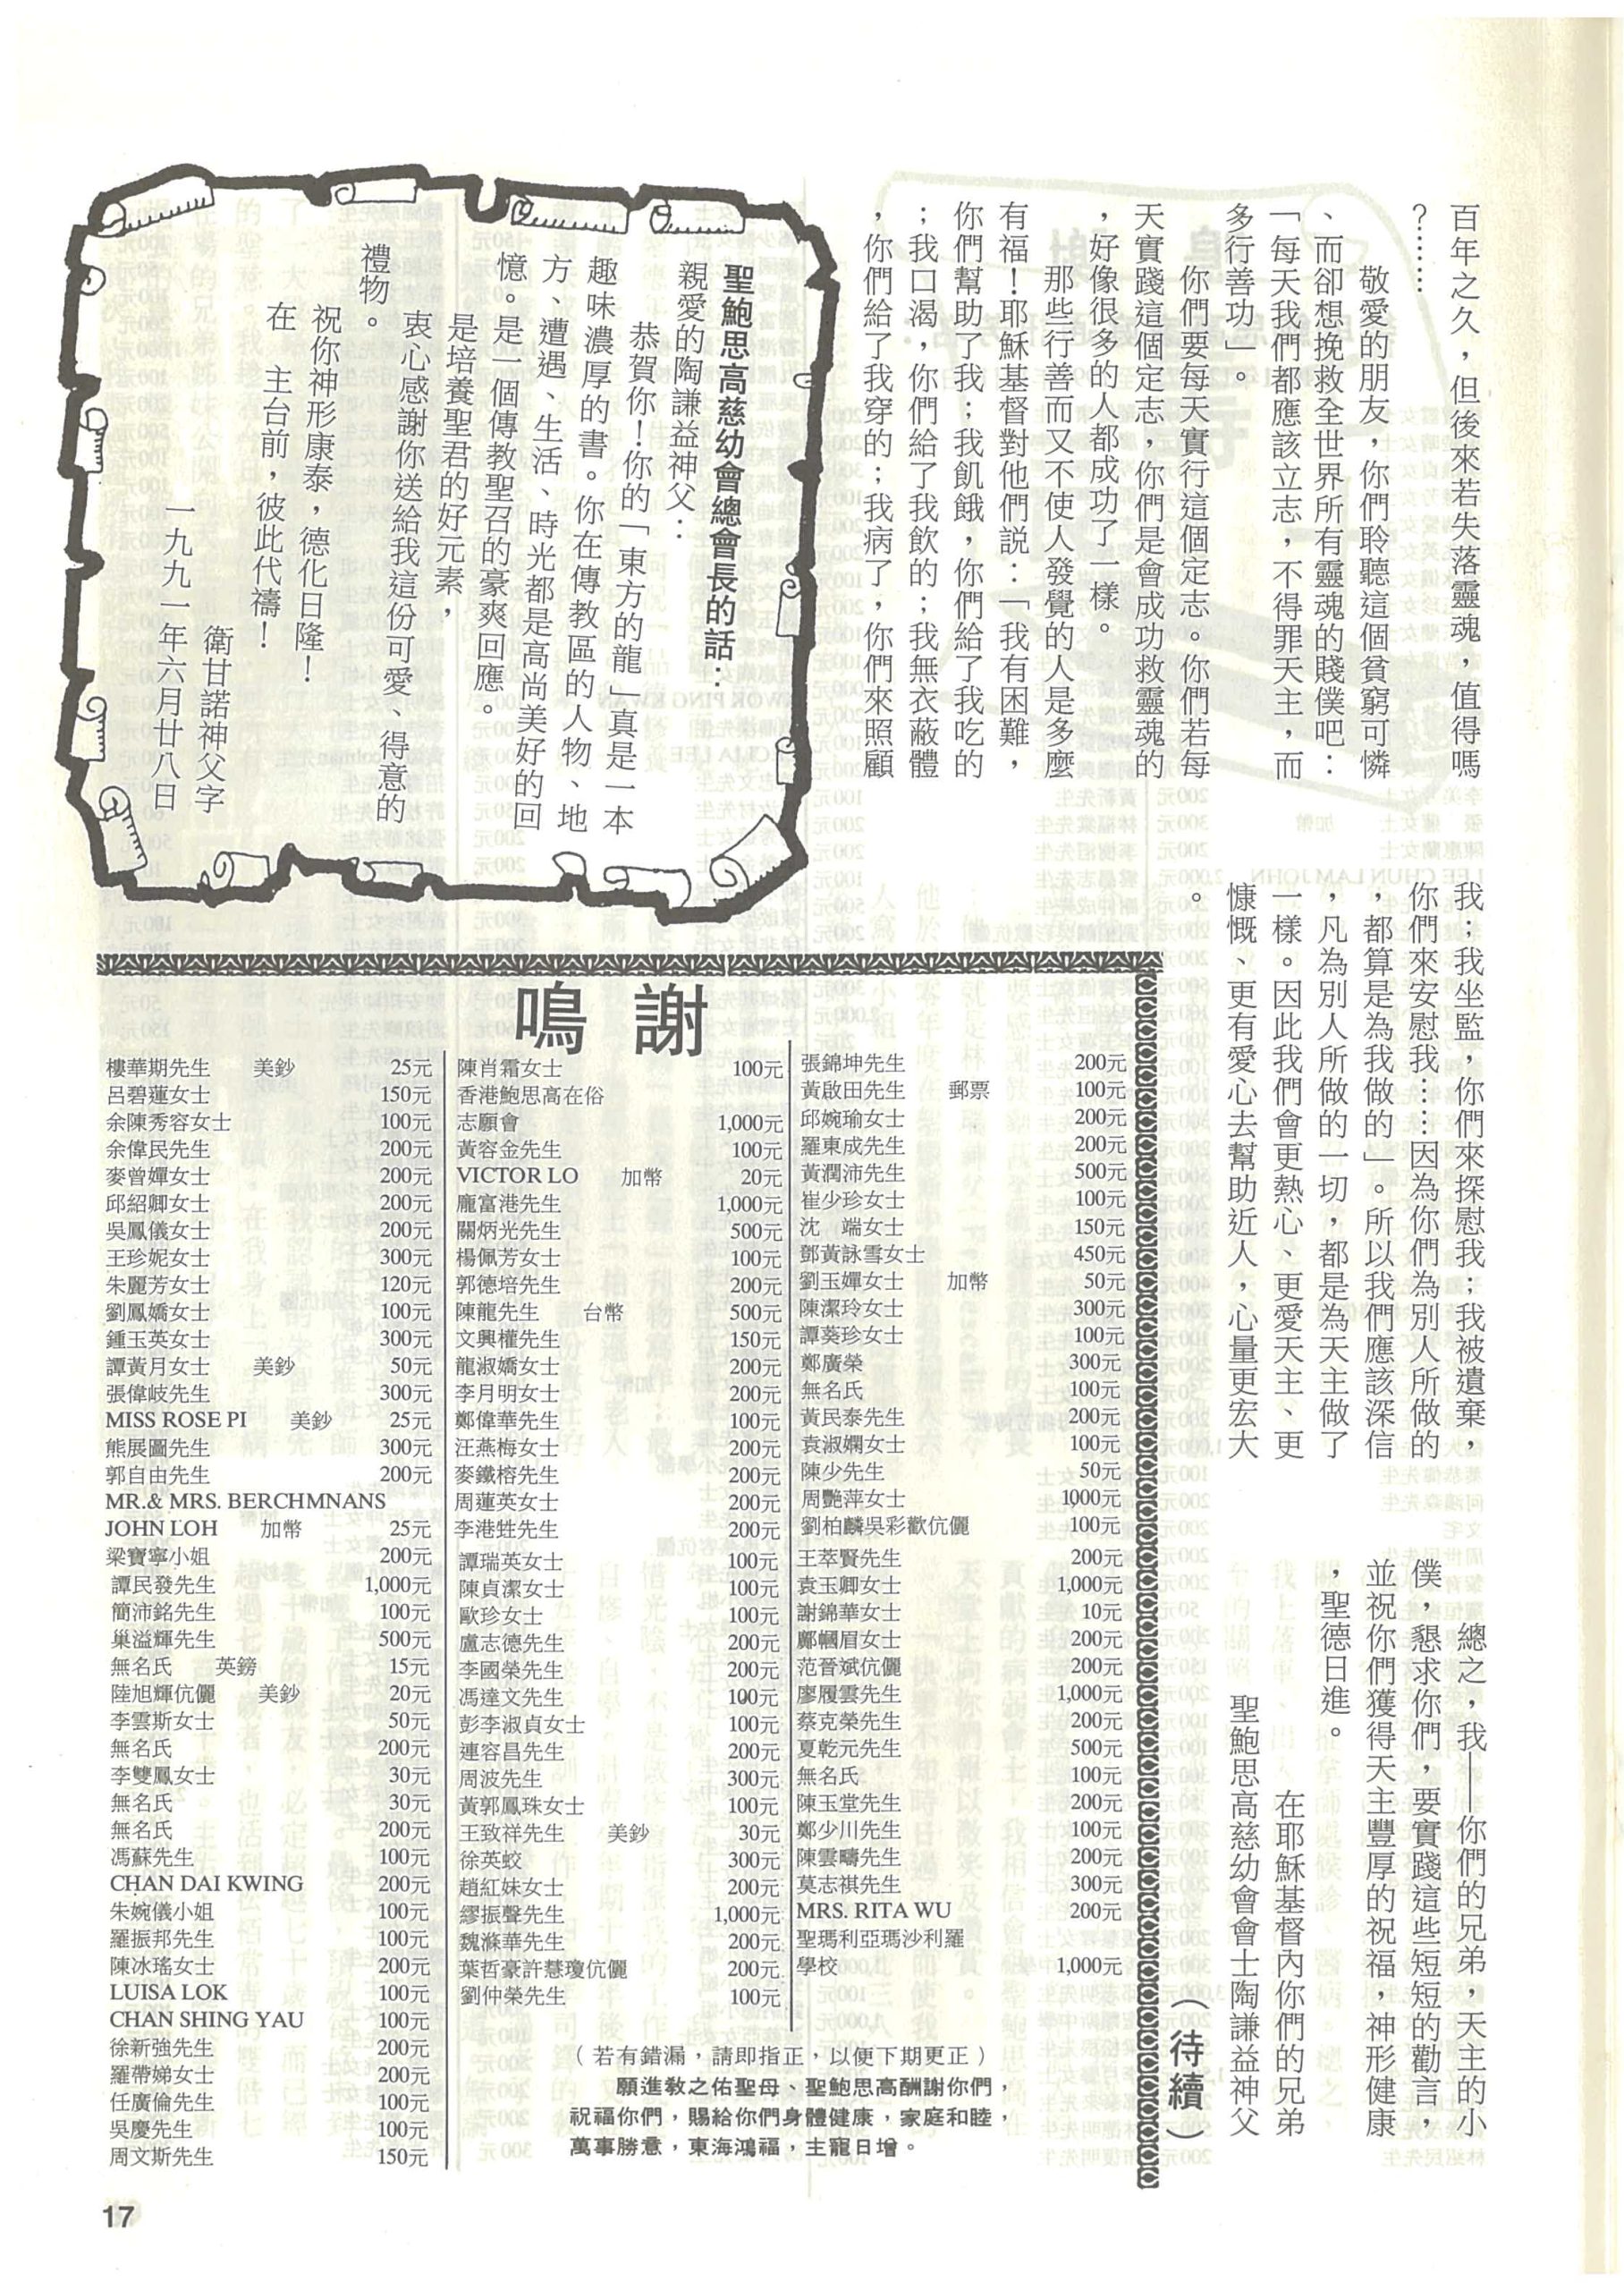 百年之久，但後來若失落靈魂，值得嗎
？……
敬愛的朋友，你們聆聽這個貧窮可憐
、而卻想挽救全世界所有靈魂的賤僕吧：
「每天我們都應該立志，不得罪天主，而
多行善功」。
你們要每天實行這個定志。你們若每
天實踐這個定志，你們是會成功救靈魂的
，好像很多的人都成功了一樣。
那些行善而又不使人發覺的人是多麼
有福！耶穌基督對他們説：「我有困難，
你們幫助了我；我飢餓，你們給了我吃的
；我口渴，你們給了我飲的；我無衣蔽體
，你們給了我穿的；我病了，你們來照顧
我；我坐監，你們來探慰我；我被遺棄，
你們來安慰我……因為你們為別人所做的
，都算是為我做的」。所以我們應該深信
，凡為別人所做的一切，都是為天主做了
一樣。因此我們會更熱心、更愛天主、更
慷慨、更有愛心去幫助近人，心量更宏大
。
總之，我——你們的兄弟，天主的小
僕，懇求你們，要實踐這些短短的勸言，
並祝你們獲得天主豐厚的祝福，神形健康
，聖德日進。
在耶穌基督內你們的兄弟
聖鮑思高慈幼會會士陶謙益神父
（待續）
聖鮑思高慈幼會總會長的話：
親愛的陶謙益神父：
恭賀你！你的「東方的龍」真是一本
趣味濃厚的書。你在傳教區的人物、地
方、遭遇、生活、時光都是高尚美好的回
憶。是一個傳教聖召的豪爽回應。
是培養聖君的好元素，
衷心感謝你送給我這份可愛、得意的
禮物。
祝你神形康泰，德化日隆！
在　主台前，彼此代禱！
衛甘諾神父字
一九九一年六月廿八日
鳴謝
樓華期先生　美鈔　25元
呂碧蓮女士　150元
余陳秀容女士　100元
余偉民先生　200元
麥曾嬋女士　200元
邱紹卿女士　200元
吳鳳儀女士　200元
王珍妮女士　300元
朱麗芳女士　120元
劉鳳嬌女士　100元
鍾玉英女士　300元
譚黃月女士　美鈔　50元
張偉岐先生　300元
MISS ROSE PI　美鈔　25元
熊展圖先生　300元
郭自由先生　200元
MR.& MRS. BERCHMNANS
JOHN LOH　加幣　25元
梁寶寧小姐　200元
譚民發先生　1,000元
簡沛銘先生　100元
巢溢輝先生　500元
無名氏　英鎊　15元
陸旭輝伉儷　美鈔　20元
李雲斯女士　50元
無名氏　200元
李雙鳳女士　30元
無名氏　30元
無名氏　200元
馮蘇先生　100元
CHAN DAI KWING　200元
朱婉儀小姐　100元
羅振邦先生　100元
陳冰瑤女士　200元
LUISA LOK　100元
CHAN SHING YAU　100元
徐新強先生　200元
羅帶娣女士　200元
任廣倫先生　100元
吳慶先生　100元
周文斯先生　150元
陳肖霜女士　100元
香港鮑思高在俗
志願會　1,000元
黃容金先生　100元
VICTOR LO　加幣　20元
龐富港先生　1,000元
關炳光先生　500元
楊佩芳女士　100元
郭德培先生　200元
陳龍先生　台幣　500元
文興權先生　150元
龍淑嬌女士　200元
李月明女士　200元
鄭偉華先生　100元
汪燕梅女士　200元
麥鐵榕先生　200元
周蓮英女士　200元
李港甡先生　200元
譚瑞英女士　100元
陳貞潔女士　100元
歐珍女士　100元
盧志德先生　200元
李國榮先生　200元
馮達文先生　100元
彭李淑貞女士　100元
連容昌先生　200元
周波先生　300元
黃郭鳳珠女士　100元
王致祥先生　美鈔　30元
徐英蛟　300元
趙紅妹女士　200元
繆振聲先生　1,000元
魏滌華先生　200元
葉哲豪許慧瓊伉儷　200元
劉仲榮先生　100元
張錦坤先生　200元
黃啟田先生　郵票　100元
邱婉瑜女士　200元
羅東成先生　200元
黃潤沛先生　500元
崔少珍女士　100元
沈　端女士　150元
鄧黃詠雪女士　450元
劉玉嬋女士　加幣　50元
陳潔玲女士　300元
譚葵珍女士　100元
鄭廣榮　300元
無名氏　100元
黃民泰先生　200元
袁淑嫻女士　100元
陳少先生　50元
周艷萍女士　1000元
劉柏麟吳彩歡伉儷　100元
王萃賢先生　200元
袁玉卿女士　1,000元
謝錦華女士　10元
鄺幗眉女士　200元
范晉斌伉儷　200元
廖履雲先生　1,000元
蔡克榮先生　200元
夏乾元先生　500元
無名氏　100元
陳玉堂先生　200元
鄭少川先生　100元
陳雲疇先生　200元
莫志祺先生　300元
MRS. RITA WU　200元
聖瑪利亞瑪沙利羅
學校　1,000元
（若有錯漏，請即指正，以便下期更正）
願進教之佑聖母、聖鮑思高酬謝你們，
祝福你們，賜給你們身體健康，家庭和睦，
萬事勝意，東海鴻福，主寵日增。
17